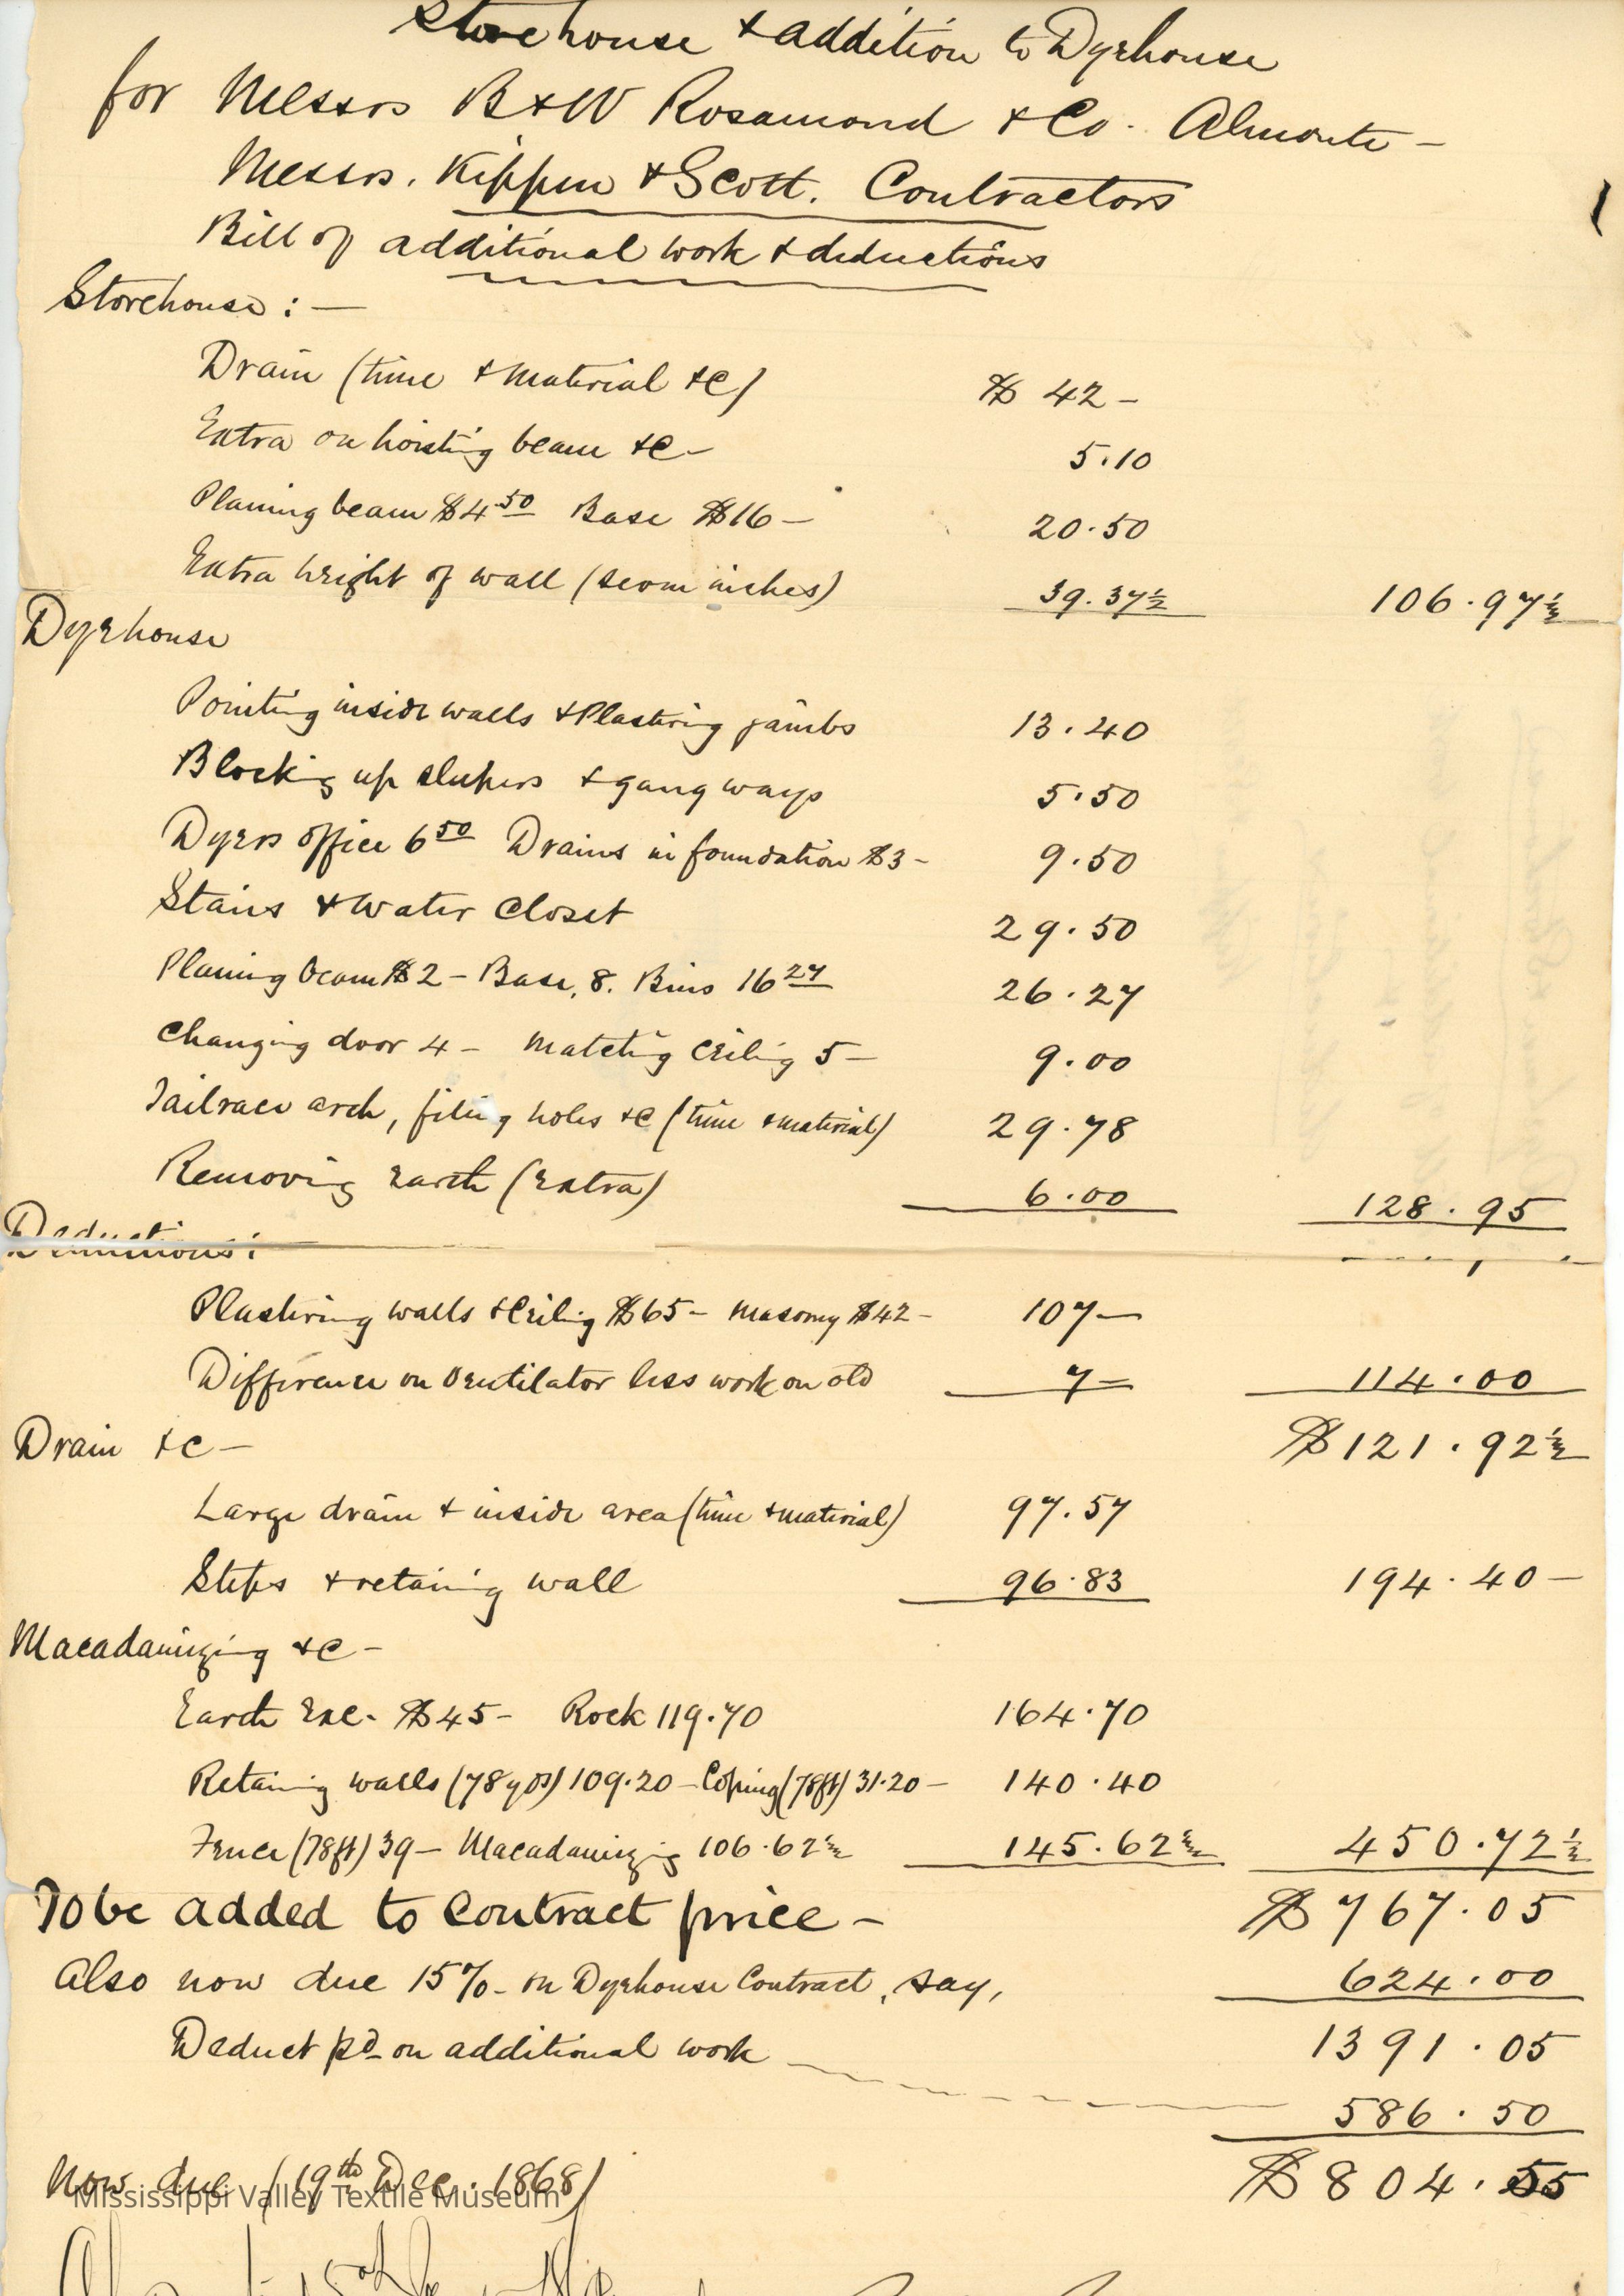 Storehouse & addition to Dyehouse
for Messrs B & W Rosamond & Co. Almonte –
Messrs. Kippen & Scott. Contractors
Bill of additional work & deductions
Storehouse : —
Drain (time & material &c) $ 42 –
Extra on hoisting beam &c – 5.10
Planing beam $4.50 Base $16 – 20.50
Extra height of wall (seven inches) 39.37½ 106.97½
Dyehouse
Pointing inside walls & Plastering jambs 13.40
Blocking up sleepers & gang ways 5.50
Dyers office 6 50 Drains in foundation $3 – 9.50
Stairs & Water Closet 29.50
Planing beam $2 – Base, 8. Bins 16 27 26.27
Changing door 4 – Matching Ceiling 5 – 9.00
Tailrace arch, filing holes &c (time & material) 29.78
Removing Earth (Extra) 6.00 128.95
Deductions:
Plastering walls & Ceiling $65 – Masonry $42 – 107 –
Difference on Ventilator less work on old 7 – 114.00
Drain &c – $121.92½
Large drain & inside area (time & material) 97.57
Steps & retaining wall 96.83 194.40 –
Macadamizing &c –
Earth Exc. $45 – Rock 119.70 164.70
Retaining walls (78 yds) 109.20 – Coping (78 ft) 31.20 – 140.40
Fence (78 ft) 39 – Macadamizing 106.62½ 145.62½ 450.72½
To be added to Contract price – $767.05
Also now due 15% on Dyehouse Contract, say, 624.00
1391.05
Deduct pd on additional work 586.50
Now due (19th Dec. 1868) $804.55
Mississippi Valley Textile Museum